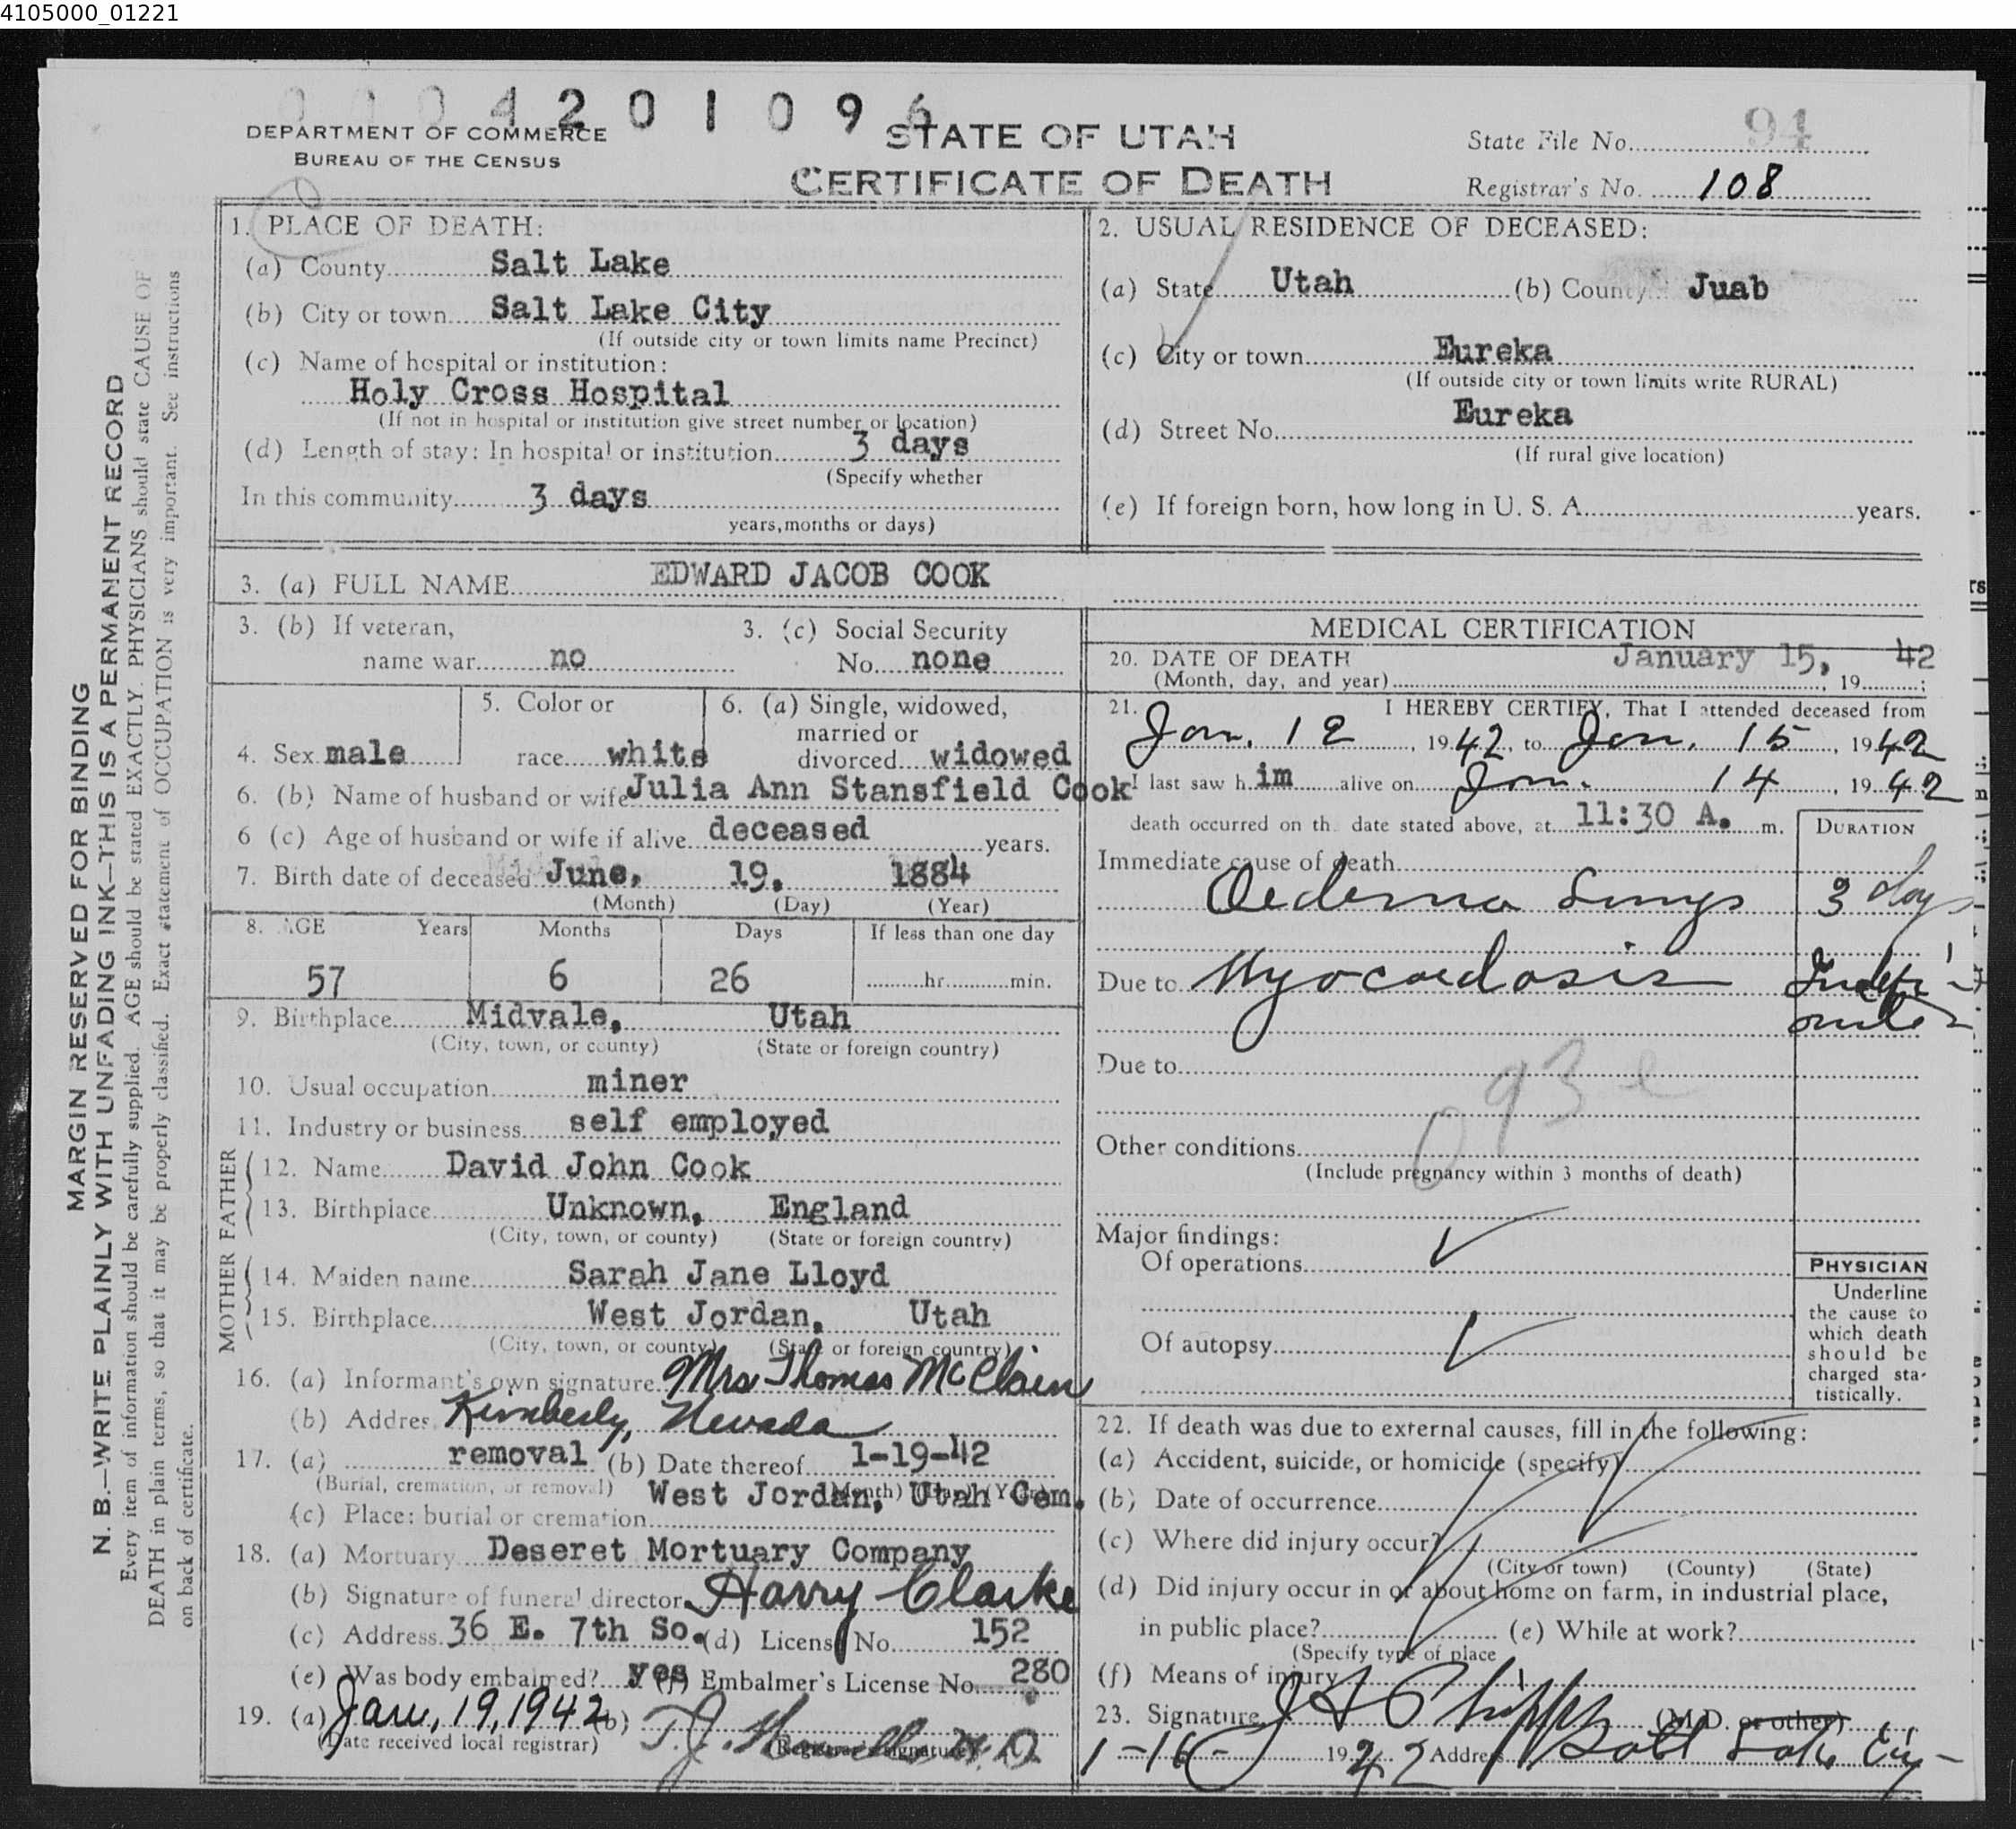 4105000_01221
0004201096
DEPARTMENT OF COMMERCE
BUREAU OF THE CENSUS
STATE OF UTAH
CERTIFICATE OF DEATH
State File No. 94
Registrar's No. 108
MARGIN RESERVED FOR BINDING
N. B.—WRITE PLAINLY WITH UNFADING INK—THIS IS A PERMANENT RECORD
Every item of information should be carefully supplied. AGE should be stated EXACTLY. PHYSICIANS should state CAUSE OF
DEATH in plain terms, so that it may be properly classified. Exact statement of OCCUPATION is very important. See instructions
on back of certificate.
1. PLACE OF DEATH:
(a) County Salt Lake
(b) City or town Salt Lake City
(If outside city or town limits name Precinct)
(c) Name of hospital or institution:
Holy Cross Hospital
(If not in hospital or institution give street number or location)
(d) Length of stay: In hospital or institution 3 days
(Specify whether
In this community 3 days
years, months or days)
2. USUAL RESIDENCE OF DECEASED:
(a) State Utah (b) County Juab
(c) City or town Eureka
(If outside city or town limits write RURAL)
(d) Street No. Eureka
(If rural give location)
(e) If foreign born, how long in U. S. A. years.
3. (a) FULL NAME EDWARD JACOB COOK
3. (b) If veteran,
name war no
3. (c) Social Security
No. none
4. Sex male
5. Color or
race white
6. (a) Single, widowed,
married or
divorced widowed
6. (b) Name of husband or wife Julia Ann Stansfield Cook
6 (c) Age of husband or wife if alive deceased years.
7. Birth date of deceased June, 19, 1884
(Month) (Day) (Year)
8. AGE Years Months Days If less than one day
57 6 26 hr. min.
9. Birthplace Midvale, Utah
(City, town, or county) (State or foreign country)
10. Usual occupation miner
11. Industry or business self employed
FATHER
12. Name David John Cook
13. Birthplace Unknown, England
(City, town, or county) (State or foreign country)
MOTHER
14. Maiden name Sarah Jane Lloyd
15. Birthplace West Jordan, Utah
(City, town, or county) (State or foreign country)
16. (a) Informant's own signature Mrs Thomas McClain
(b) Address Kimberly, Nevada
17. (a) removal (b) Date thereof 1-19-42
(Burial, cremation, or removal) (Month) (Day) (Year)
(c) Place: burial or cremation West Jordan, Utah Cem.
18. (a) Mortuary Deseret Mortuary Company
(b) Signature of funeral director Harry Clarke
(c) Address 36 E. 7th So. (d) License No. 152
(e) Was body embalmed? yes (f) Embalmer's License No. 280
19. (a) Jan. 19, 1942 (b) T. J. Howells M.D.
(Date received local registrar) (Registrar's signature)
MEDICAL CERTIFICATION
20. DATE OF DEATH January 15, 42
(Month, day, and year) , 19 ;
21. I HEREBY CERTIFY, That I attended deceased from
Jan. 12, 1942, to Jan. 15, 1942
I last saw him alive on Jan. 14, 1942
death occurred on the date stated above, at 11:30 A. m.
DURATION
Immediate cause of death
Oedema Lungs 3 days
Due to Myocardosis Indefi-
nite
Due to
93e
Other conditions
(Include pregnancy within 3 months of death)
Major findings:
Of operations ✓
Of autopsy ✓
PHYSICIAN
Underline
the cause to
which death
should be
charged sta-
tistically.
22. If death was due to external causes, fill in the following:
(a) Accident, suicide, or homicide (specify)
(b) Date of occurrence
(c) Where did injury occur?
(City or town) (County) (State)
(d) Did injury occur in or about home on farm, in industrial place,
in public place? (e) While at work?
(Specify type of place
(f) Means of injury
23. Signature (M.D. or other)
1-16- 1942 Address Salt Lake City